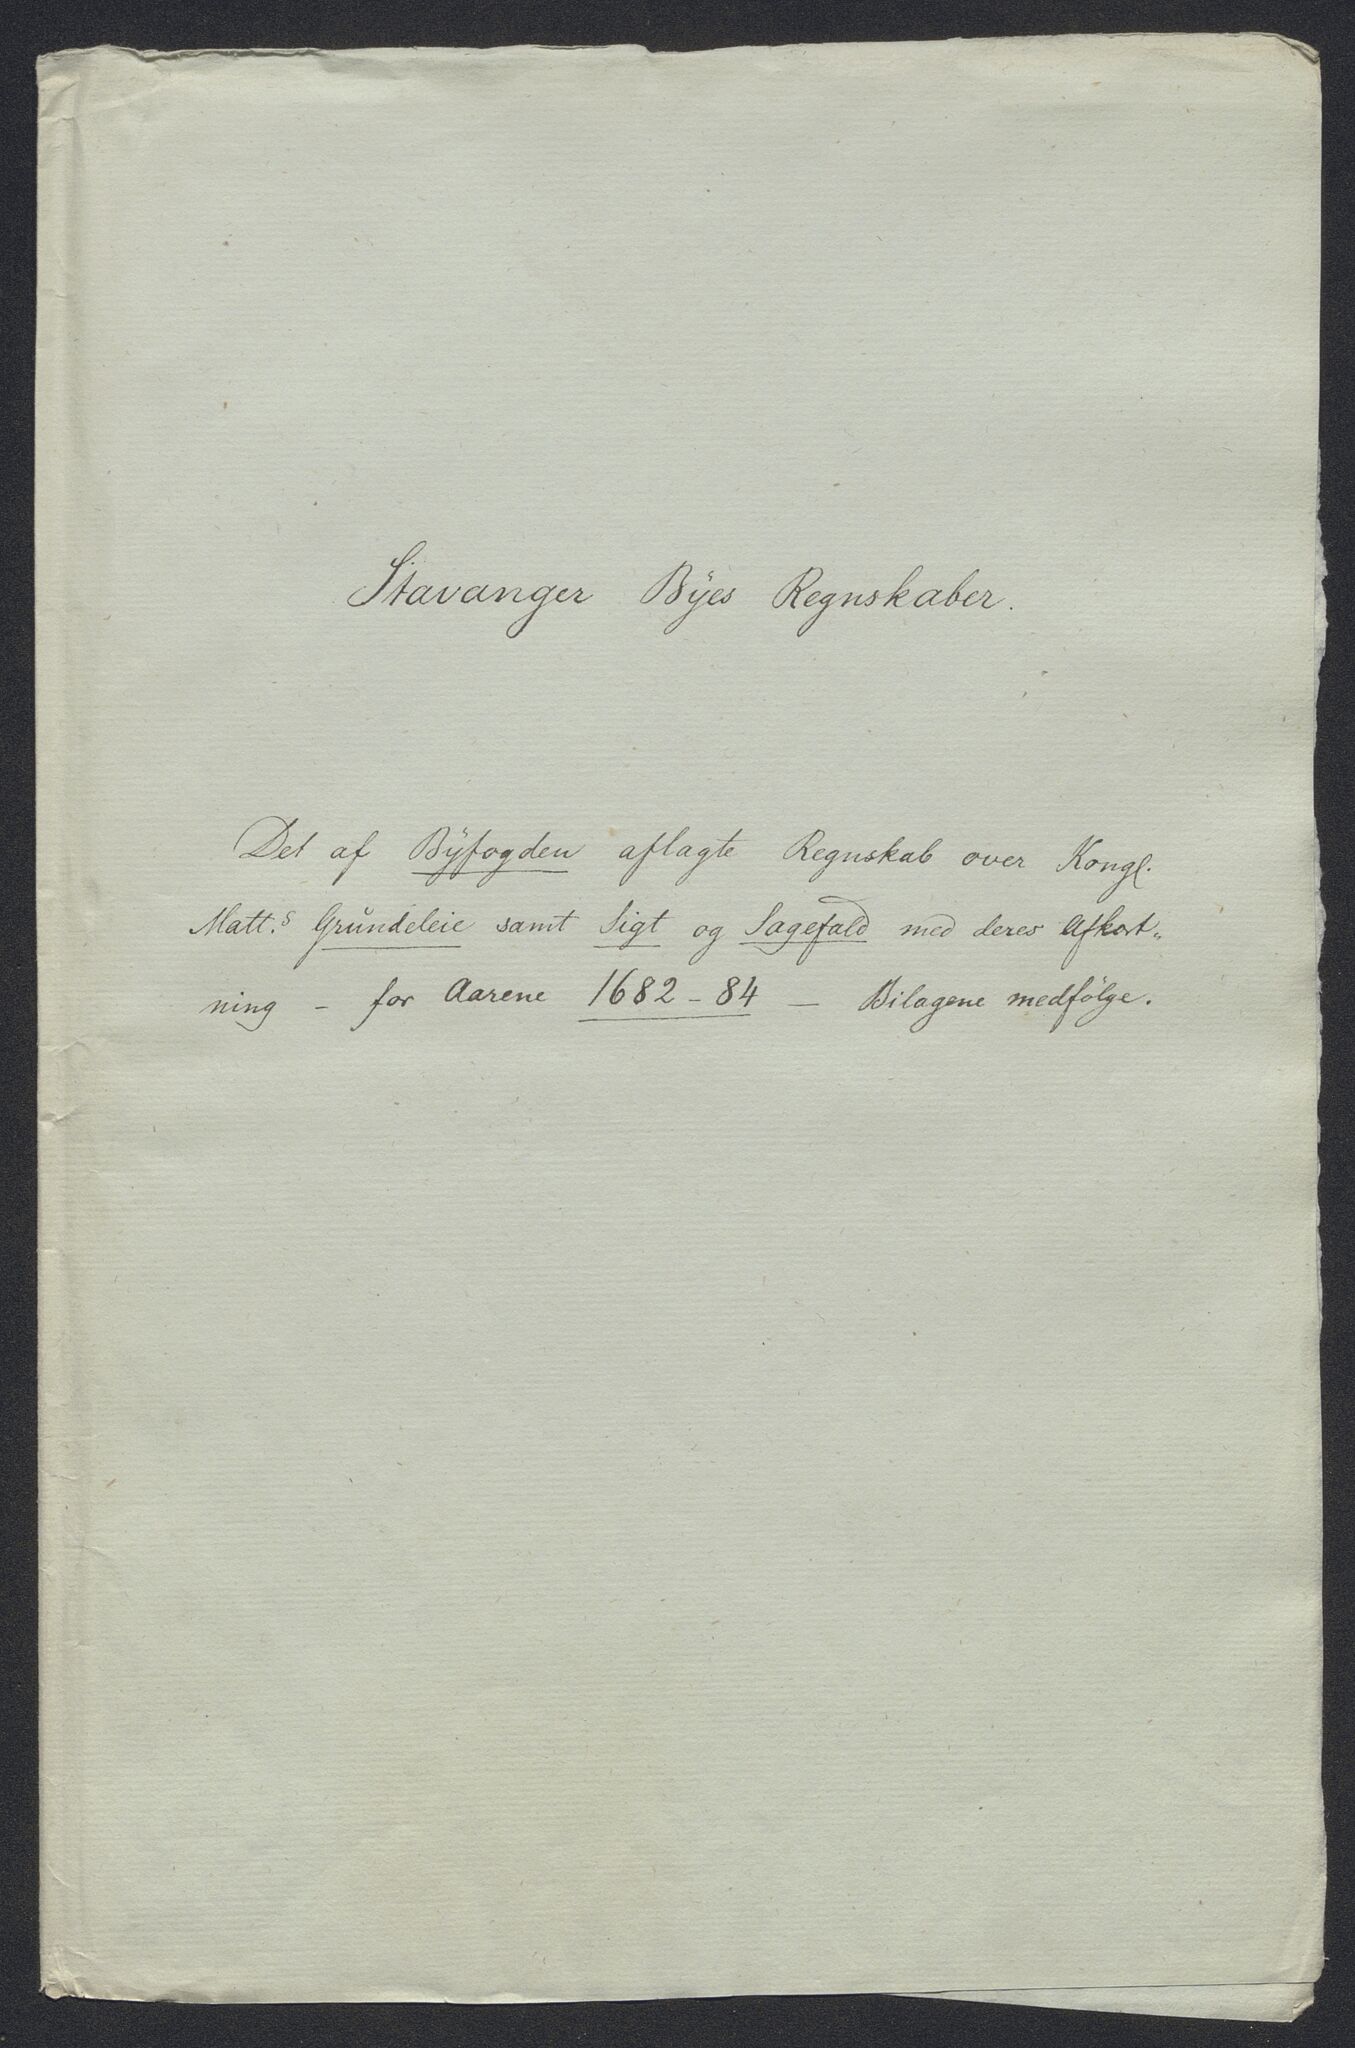 Stavanger Bÿes Regnskaber.
Det af Bÿfogden aflagte Regnskab over Kongl.
Matt.s Grŭndeleie samt Sigt og Sagefald med deres Afkort„
ning – for Aarene 1682–84 – Bilagene medfölge.